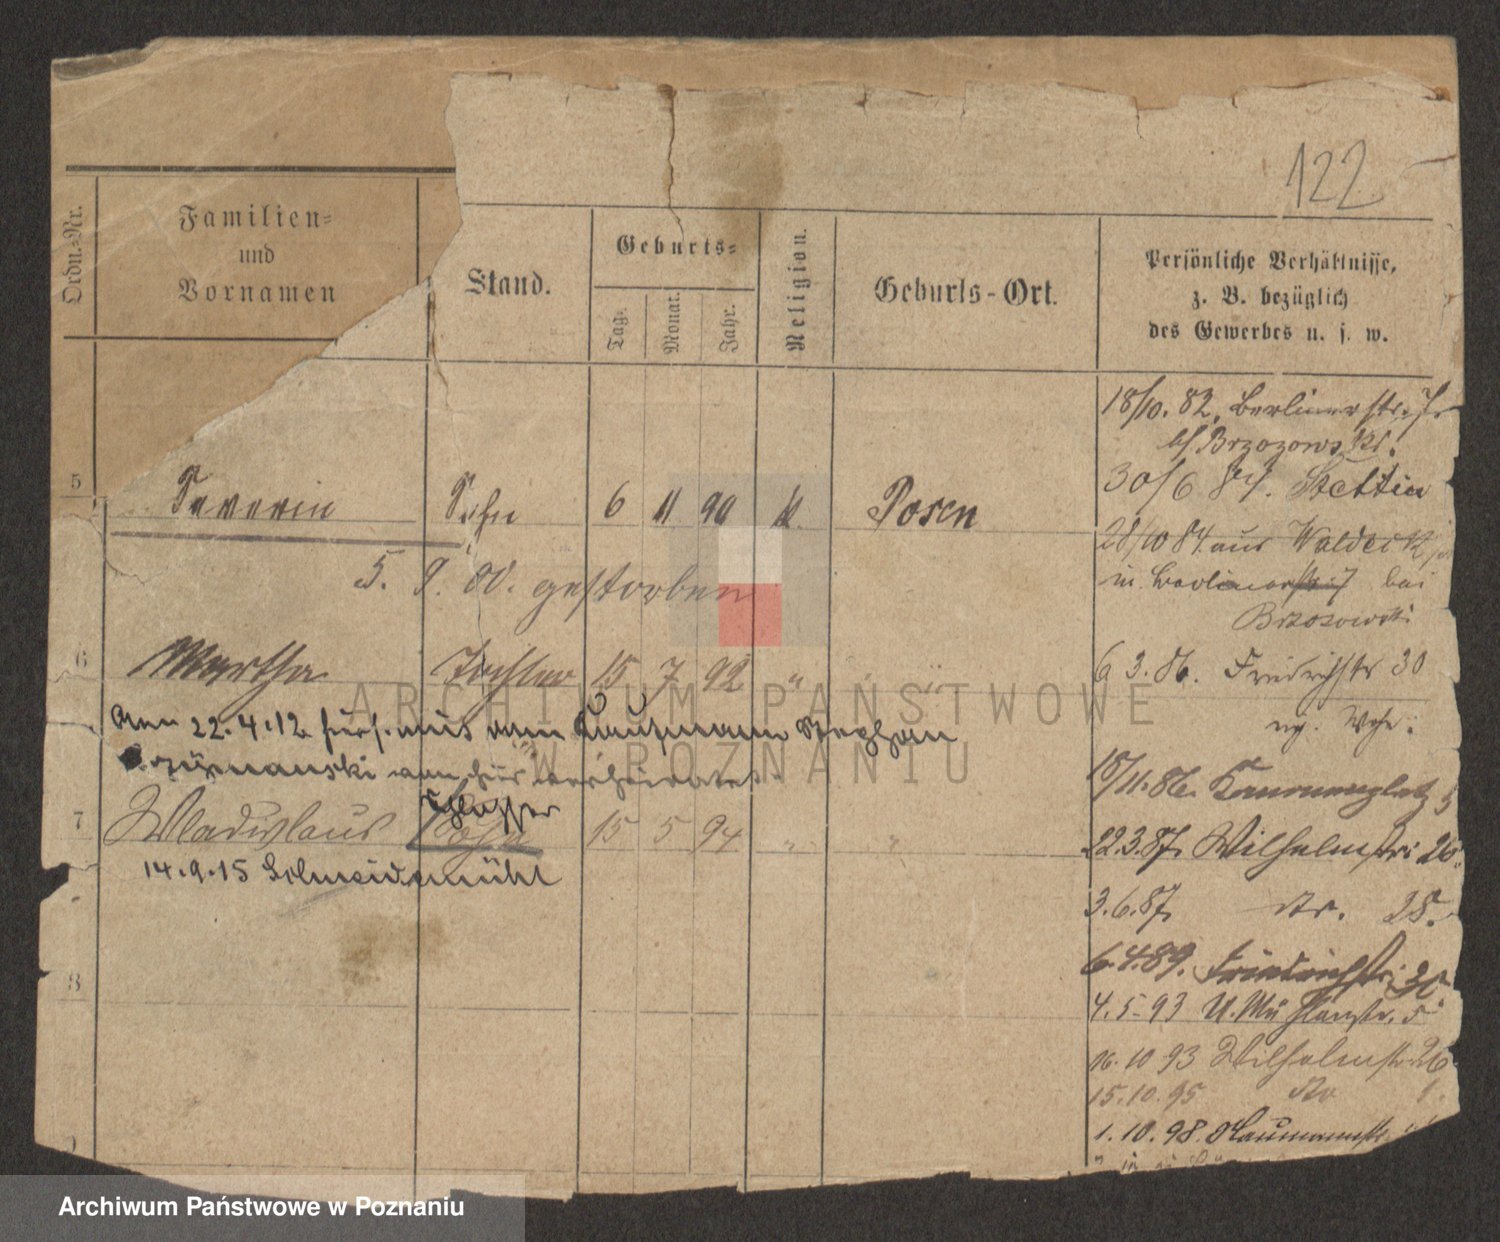 122
Ordn.-Nr.
Familien-
und
Vornamen
Stand.
Geburts-
Tag.
Monat.
Jahr.
Religion.
Geburts-Ort.
Persönliche Verhältnisse,
z. B. bezüglich
des Gewerbes u. s. w.
18/10. 82. Berlinerstr. 7.
bf. Brzozowski.
30/6 Stettin
5 Severin Sohn 6 11 90 k. Posen
28/10 84 aus Waldeck
in Berlinerstr. 7 bei
Brzozowski
5. 9. 00. gestorben
6 Martha Tochter 15 7 92 " "
6 3. 86. Friedrichstr 30
am 22.4.12 mit dem Kaufmann Stephan
von hier verheiratet.
18/11. 86. Kanonenplatz 5
Schlosser
7 Wladislaus Sohn 15 5 94 " "
22.3.87. Wilhelmstr. 26.
14.9.15 Schneidemühl
3.6.87. do. 25.
6.4.89. Friedrichstr. 30
8
4.5.93 U. Mühlenstr. 5
16.10 93 Wilhelmstr. 26
15.10.95 do
1.10.98. Naumannstr.
ARCHIWUM PAŃSTWOWE
W POZNANIU
Archiwum Państwowe w Poznaniu